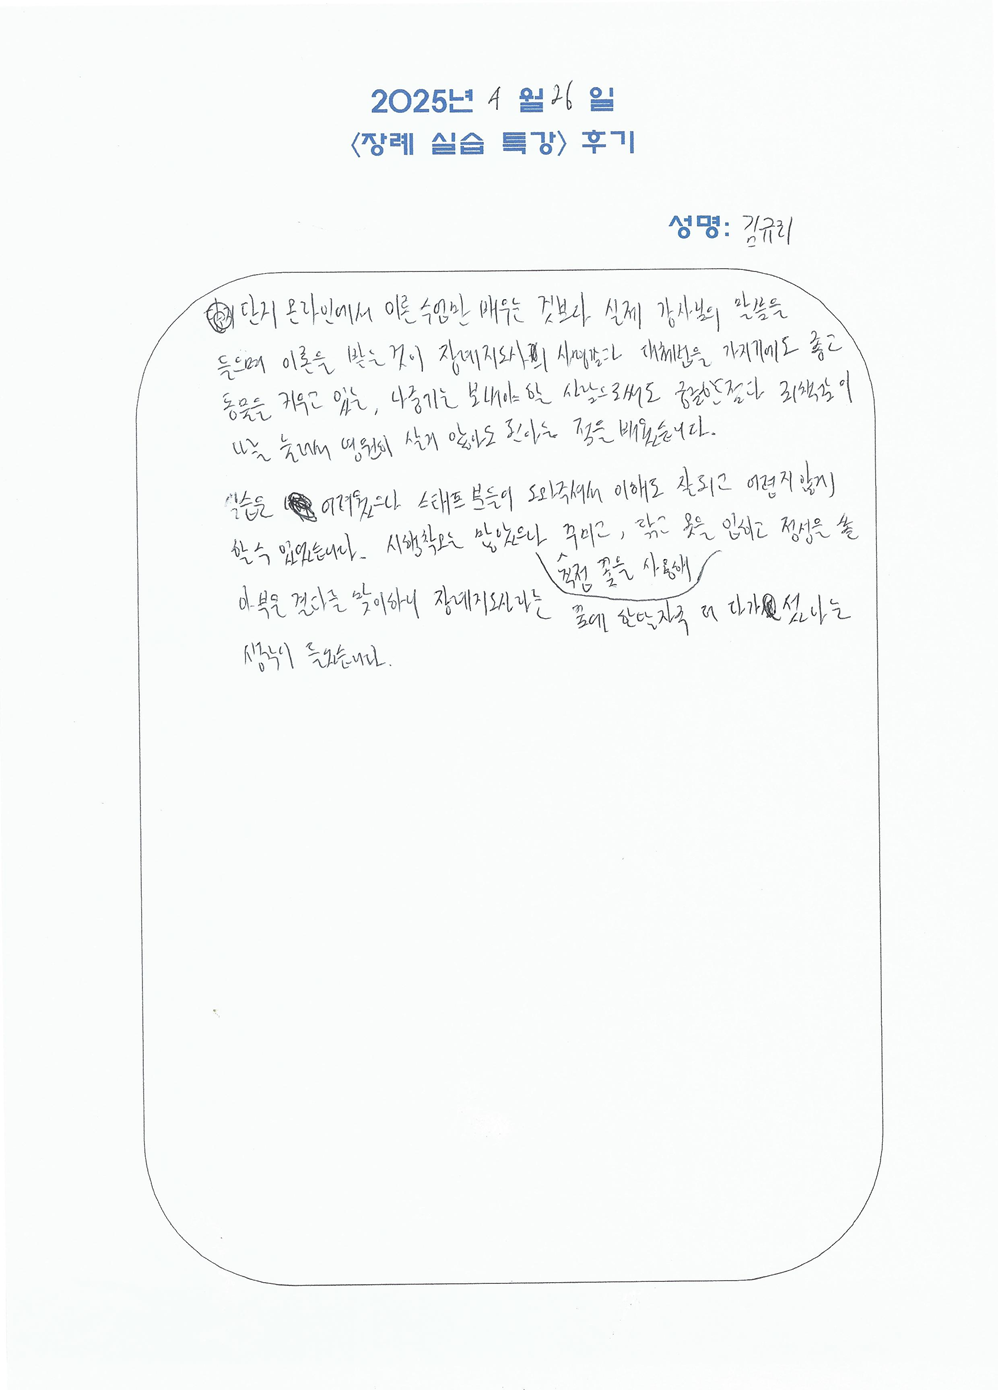 2025년 4 월 26 일
<장례 실습 특강> 후기
성명: 김규리
단지 온라인에서 이론수업만 배우는 것보다 실제 강사님의 말씀을
들으며 이론을 받는 것이 장례지도사의 사명감과 대처법을 가지기에도 좋고
동물을 키우고 있는, 나중에는 보내야 할 사람으로써도 궁금한점과 죄책감이
나를 눌러서 영원히 살지 않아도 된다는 점을 배웠습니다.
실습은 어려웠으나 스태프 분들이 도와주셔서 이해도 잘되고 어렵지 않게
할 수 있었습니다. 시행착오는 많았으나 꾸미고, 닦고 옷을 입히고 정성을 쏟
직접 꽃을 사용해
아부은 결과를 맞이하니 장례지도사라는 꿈에 한발자국 더 다가섰다는
생각이 들었습니다.